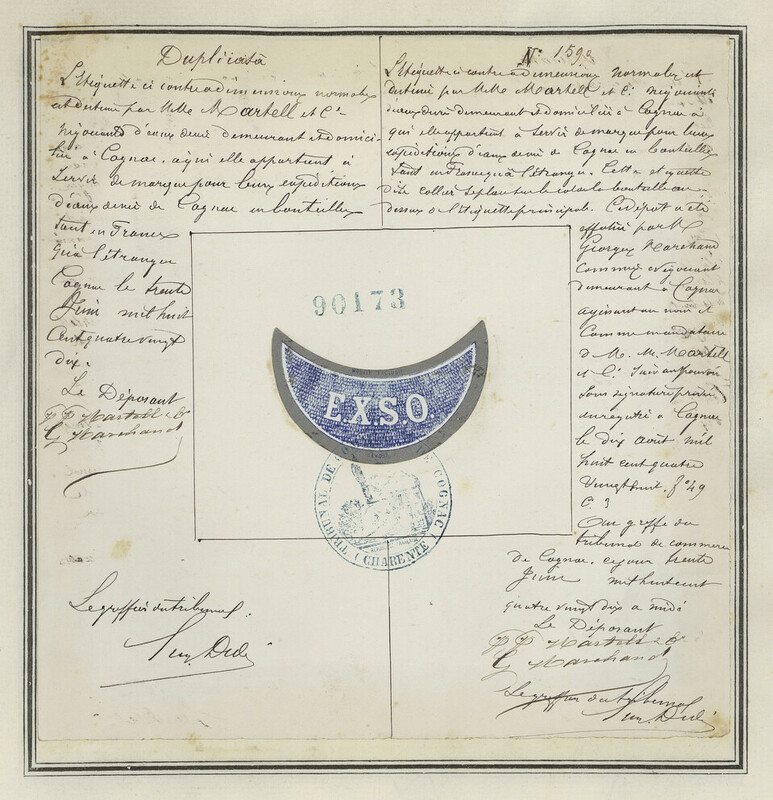 Duplicata
L'Etiquette ci contre a dimensions normales
est destinée par MM. Martell et Cie
négociants d'eaux de vie demeurant et domici
liés à Cognac, à qui elle appartient à
servir de marque pour leurs expéditions
d'eaux de vie de Cognac en bouteilles
tant en France
qu'à l'étranger
Cognac le trente
Juin mil huit
Cent quatre vingt
dix.
Le Déposant
pp Martell & Co
G Marchand
Le greffier du tribunal.
No 1590
L'Etiquette ci contre à dimensions normales est
destinée par MM. Martell et Cie négociants
d'eaux de vie demeurant et domiciliés à Cognac à
qui elle appartient à servir de marque pour leurs
expéditions d'eaux de vie de Cognac en bouteilles
tant en France qu'à l'étranger. Cette étiquette
dite collier se place sur le col de la bouteille au-
dessus de l'étiquette principale. Ce dépôt a été
effectué par M.
Georges Marchand
Commis négociant
demeurant à Cognac
agissant au nom et
Comme mandataire
de M. M. Martell
et Cie suivant pouvoir
sous signature privée
enregistré à Cognac
le dix août mil
huit cent quatre
vingt huit, fo 49
C. 3
Au greffe du
tribunal de commerce
de Cognac, ce jour trente
Juin mil huit cent
quatre vingt dix à midi
Le Déposant
pp Martell & Co
G Marchand
Le greffier du tribunal
90173
E.X.S.O
TRIBUNAL DE COGNAC
(CHARENTE)